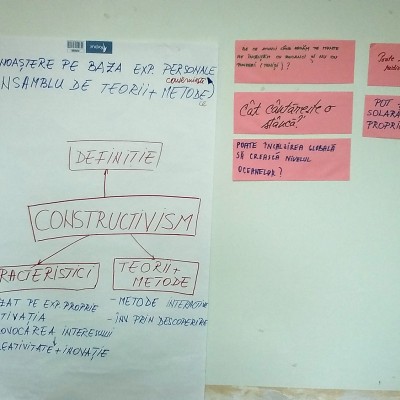 NOAȘTERE PE BAZA EXP. PERSONALE
NSAMBLU DE TEORII + METODE
DEFINIȚIE
CONSTRUCTIVISM
RACTERISTICI
TEORII +
METODE
ZAT PE EXP. PROPRIE
TIVAȚIA
OVOCAREA INTERESULUI
EATIVITATE + INOVAȚIE
- METODE INTERACTIVE
- ÎNV PRIN DESCOPERIRE
Cât cântărește o
stâncă?
POATE ÎNCĂLZIREA GLOBALĂ
SĂ CREASCĂ NIVELUL
OCEANELOR?
Poate
POT
SOLARĂ
PROPRI